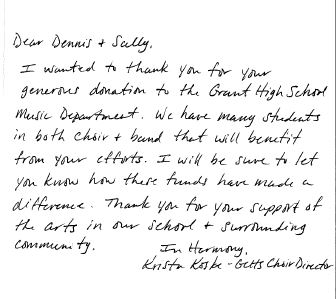 Dear Dennis + Sally,
I wanted to thank you for your
generous donation to the Grant High School
Music Department. We have many students
in both choir + band that will benefit
from your efforts. I will be sure to let
you know how these funds have made a
difference. Thank you for your support of
the arts in our school + surrounding
community.
In Harmony,
Krista Koske - GCHS Choir Director